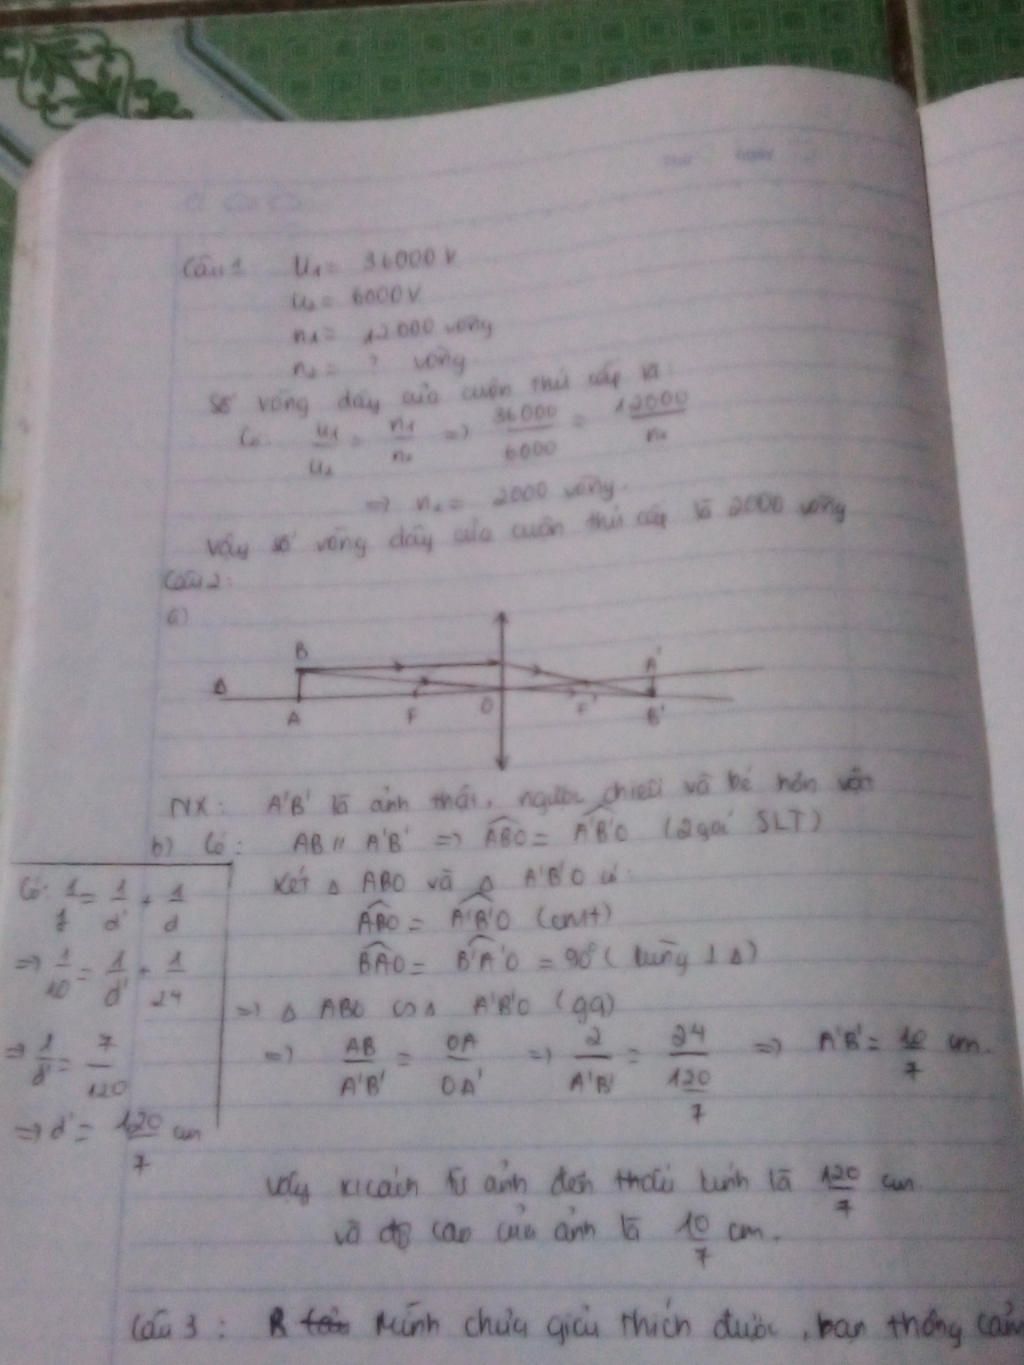 Thứ Ngày
Câu 1 U1 = 36000 V
U2 = 6000 V
n1 = 12000 vòng
n2 = ? vòng
Số vòng dây của cuộn thứ cấp là:
Có: U1/U2 = n1/n2 => 36000/6000 = 12000/n2
=> n2 = 2000 vòng.
Vậy số vòng dây của cuộn thứ cấp là 2000 vòng
Câu 2:
a)
B A'
Δ
A F O F' B'
NX: A'B' là ảnh thật, ngược chiều và bé hơn vật
b) Có: AB // A'B' => ABO = A'B'O (2 góc SLT)
Xét Δ ABO và Δ A'B'O có:
ABO = A'B'O (cmt)
BAO = B'A'O = 90° ( ⊥ Δ)
=> Δ ABO ∽ Δ A'B'O (gg)
=> AB/A'B' = OA/OA' => 2/A'B' = 24/(120/7) => A'B' = 10/7 cm.
Có: 1/f = 1/d' + 1/d
=> 1/10 = 1/d' + 1/24
=> 1/d' = 7/120
=> d' = 120/7 cm
Vậy k/cách từ ảnh đến thấu kính là 120/7 cm.
và độ cao của ảnh là 10/7 cm.
Câu 3: Mình chưa giải thích được, bạn thông cảm